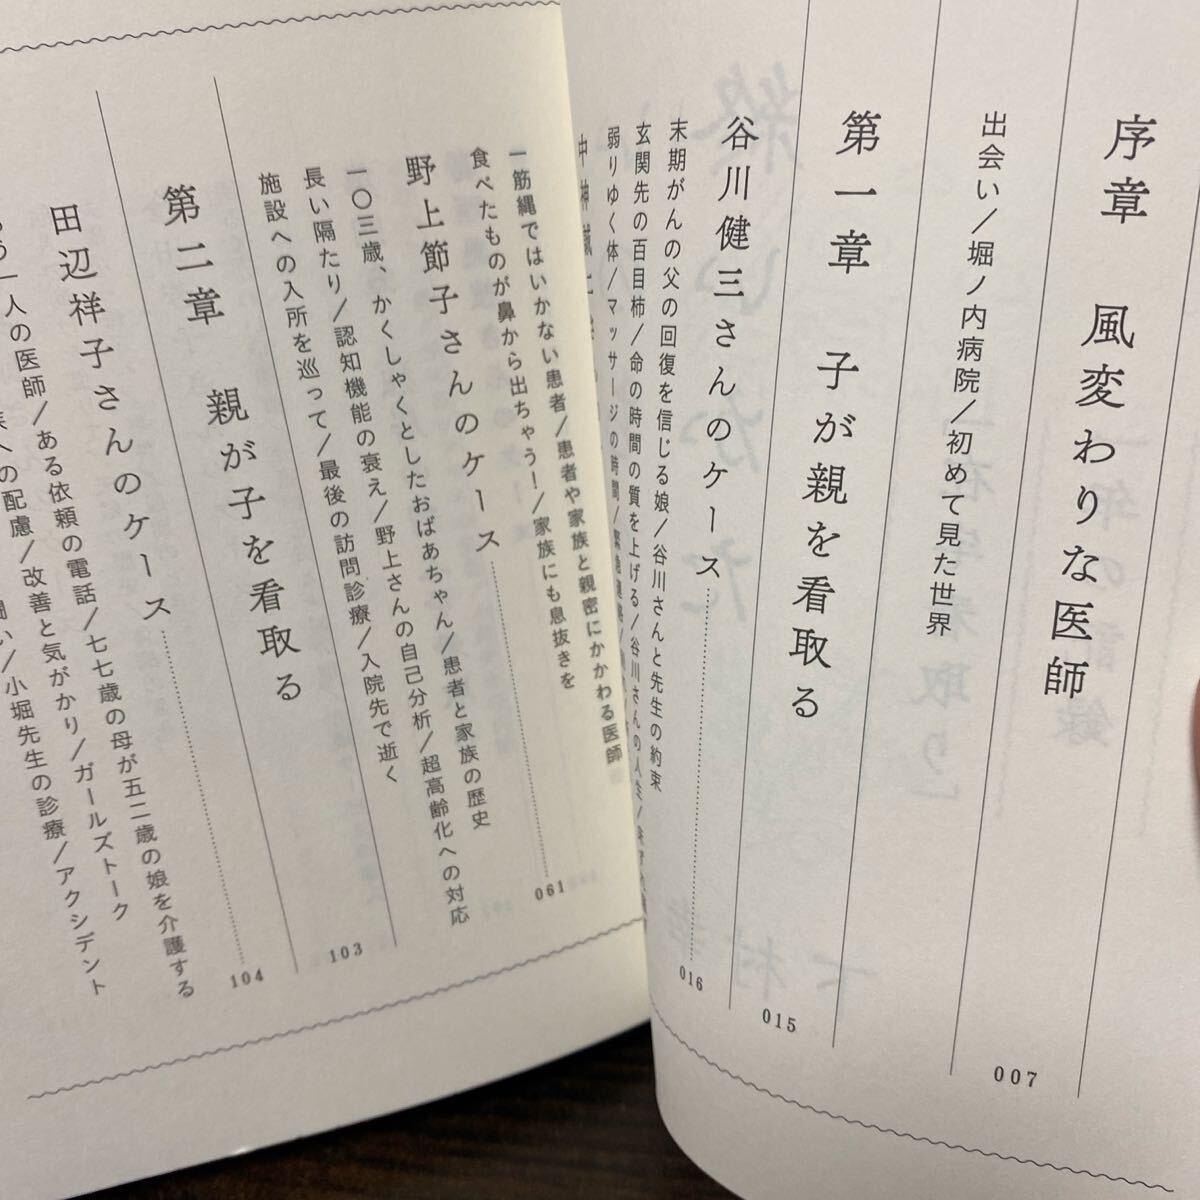 序章 風変わりな医師
007
出会い/堀ノ内病院/初めて見た世界
第一章 子が親を看取る
015
谷川健三さんのケース
016
末期がんの父の回復を信じる娘/谷川さんと先生の約束
玄関先の百目柿/命の時間の質を上げる/谷川さんの人生/
弱りゆく体/マッサージの時間/
一筋縄ではいかない患者/患者や家族と親密にかかわる医師
食べたものが鼻から出ちゃう!/家族にも息抜きを
野上節子さんのケース
061
一〇三歳、かくしゃくとしたおばあちゃん/患者と家族の歴史
長い隔たり/認知機能の衰え/野上さんの自己分析/超高齢化への対応
施設への入所を巡って/最後の訪問診療/入院先で逝く
第二章 親が子を看取る
103
田辺祥子さんのケース
104
もう一人の医師/ある依頼の電話/七七歳の母が五二歳の娘を介護する
への配慮/改善と気がかり/ガールズトーク
闘い/小堀先生の診療/アクシデント